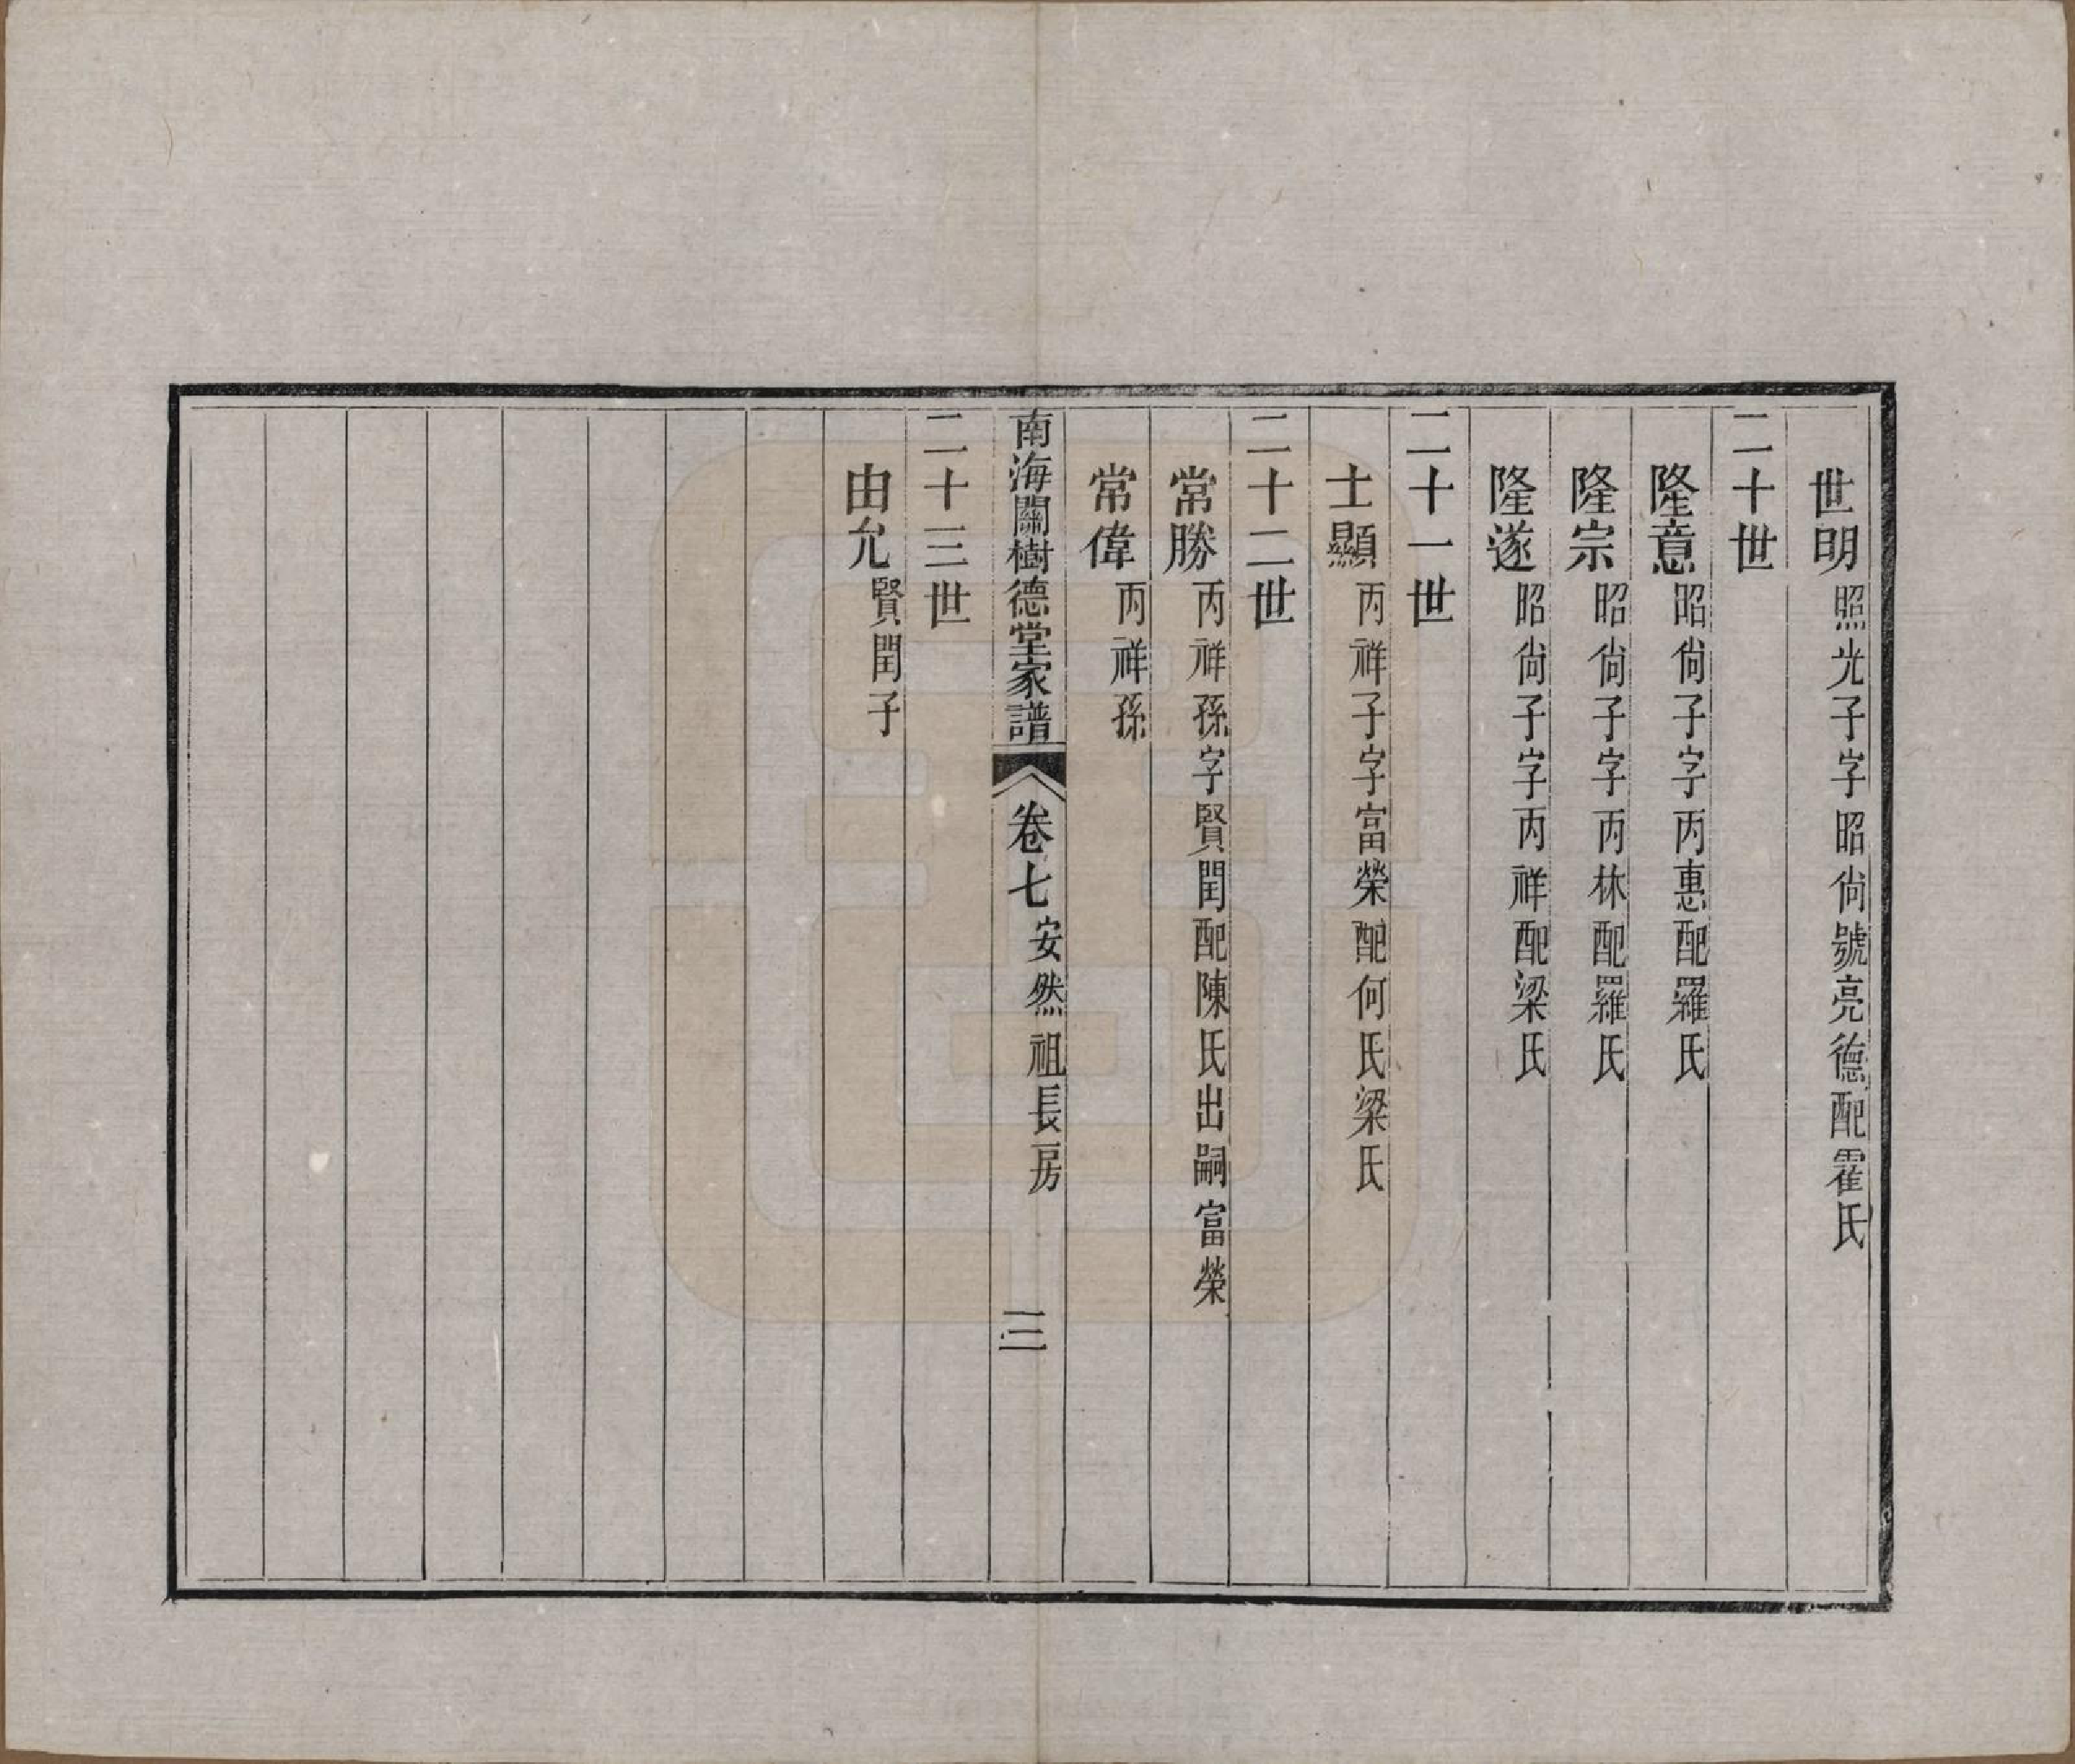 世明照光子字昭尙號亮德配霍氏
二十世
隆意昭尙子字丙惠配羅氏
隆宗昭尙子字丙林配羅氏
隆遂昭尙子字丙祥配梁氏
二十一世
士顯丙祥子字富榮配何氏梁氏
二十二世
常勝丙祥孫字賢閏配陳氏出嗣富榮
常偉丙祥孫
南海關樹德堂家譜 卷七安然祖長房 三
二十三世
由允賢閏子